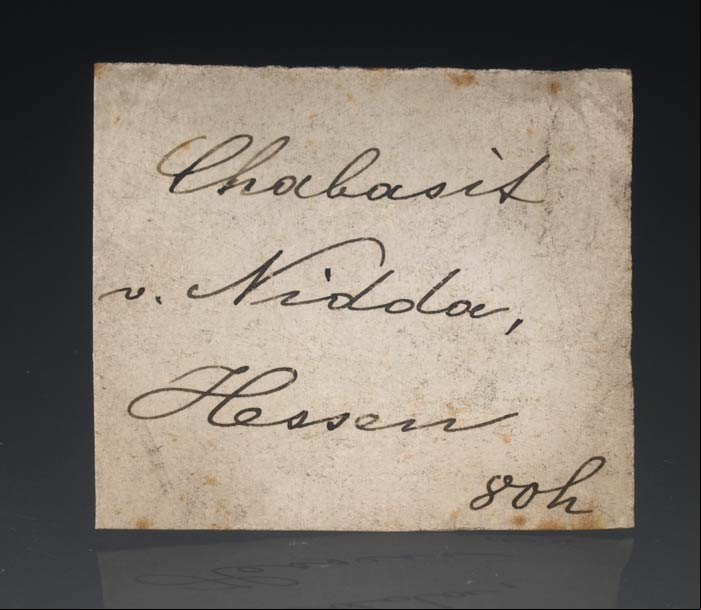 Chabasit
v. Nidda,
Hessen
80h